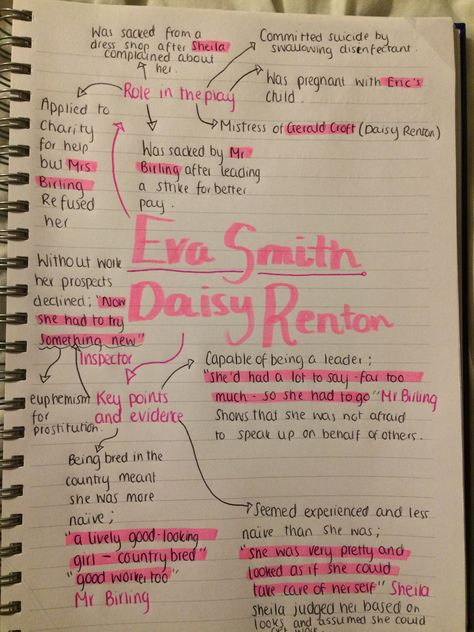 Was sacked from a
dress shop after Sheila
complained about
her.
Committed suicide by
swallowing disenfectant.
Role in the play
Was pregnant with Eric's
child.
Mistress of Gerald Croft (Daisy Renton)
Applied to
Charity
for help
but Mrs
Birling
Refused
her
Was sacked by Mr
Birling after leading
a strike for better
pay.
Eva Smith
Daisy Renton
Without work
her prospects
declined; "Now
she had to try
something new"
Inspector
euphemism
for
prostitution
Key points
and evidence
Capable of being a leader;
"she'd had a lot to say - far too
much - so she had to go" Mr Birling
Shows that she was not afraid
to speak up on behalf of others.
Being bred in the
country meant
she was more
naive;
"a lively good-looking
girl - country bred"
"good worker too"
Mr Birling
Seemed experienced and less
naive than she was;
"she was very pretty and
looked as if she could
take care of herself" Sheila
sheila judged her based on
looks and assumed she could